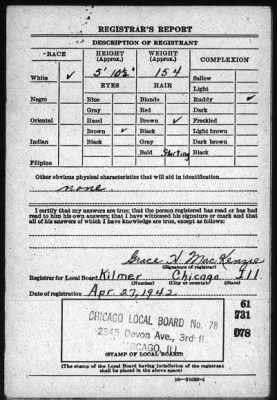 REGISTRAR'S REPORT
DESCRIPTION OF REGISTRANT
RACE HEIGHT (Approx.) WEIGHT (Approx.) COMPLEXION
White ✓ 5' 10½" 154 Sallow
EYES HAIR Light
Negro Blue Blonde Ruddy ✓
Gray Red Dark
Oriental Hazel Brown ✓ Freckled
Brown ✓ Black Light brown
Indian Black Gray Dark brown
Bald Starting Black
Filipino
Other obvious physical characteristics that will aid in identification
none.
I certify that my answers are true; that the person registered has read or has had
read to him his own answers; that I have witnessed his signature or mark and that
all of his answers of which I have knowledge are true, except as follows:
Grace H. MacKenzie
(Signature of registrar)
Registrar for Local Board Kilmer Chicago Ill
(Number) (City or county) (State)
Date of registration Apr. 27, 1942
61
CHICAGO LOCAL BOARD No. 78 731
2545 Devon Ave., 3rd fl 078
CHICAGO, ILL
(STAMP OF LOCAL BOARD)
(The stamp of the Local Board having jurisdiction of the registrant
shall be placed in the above space)